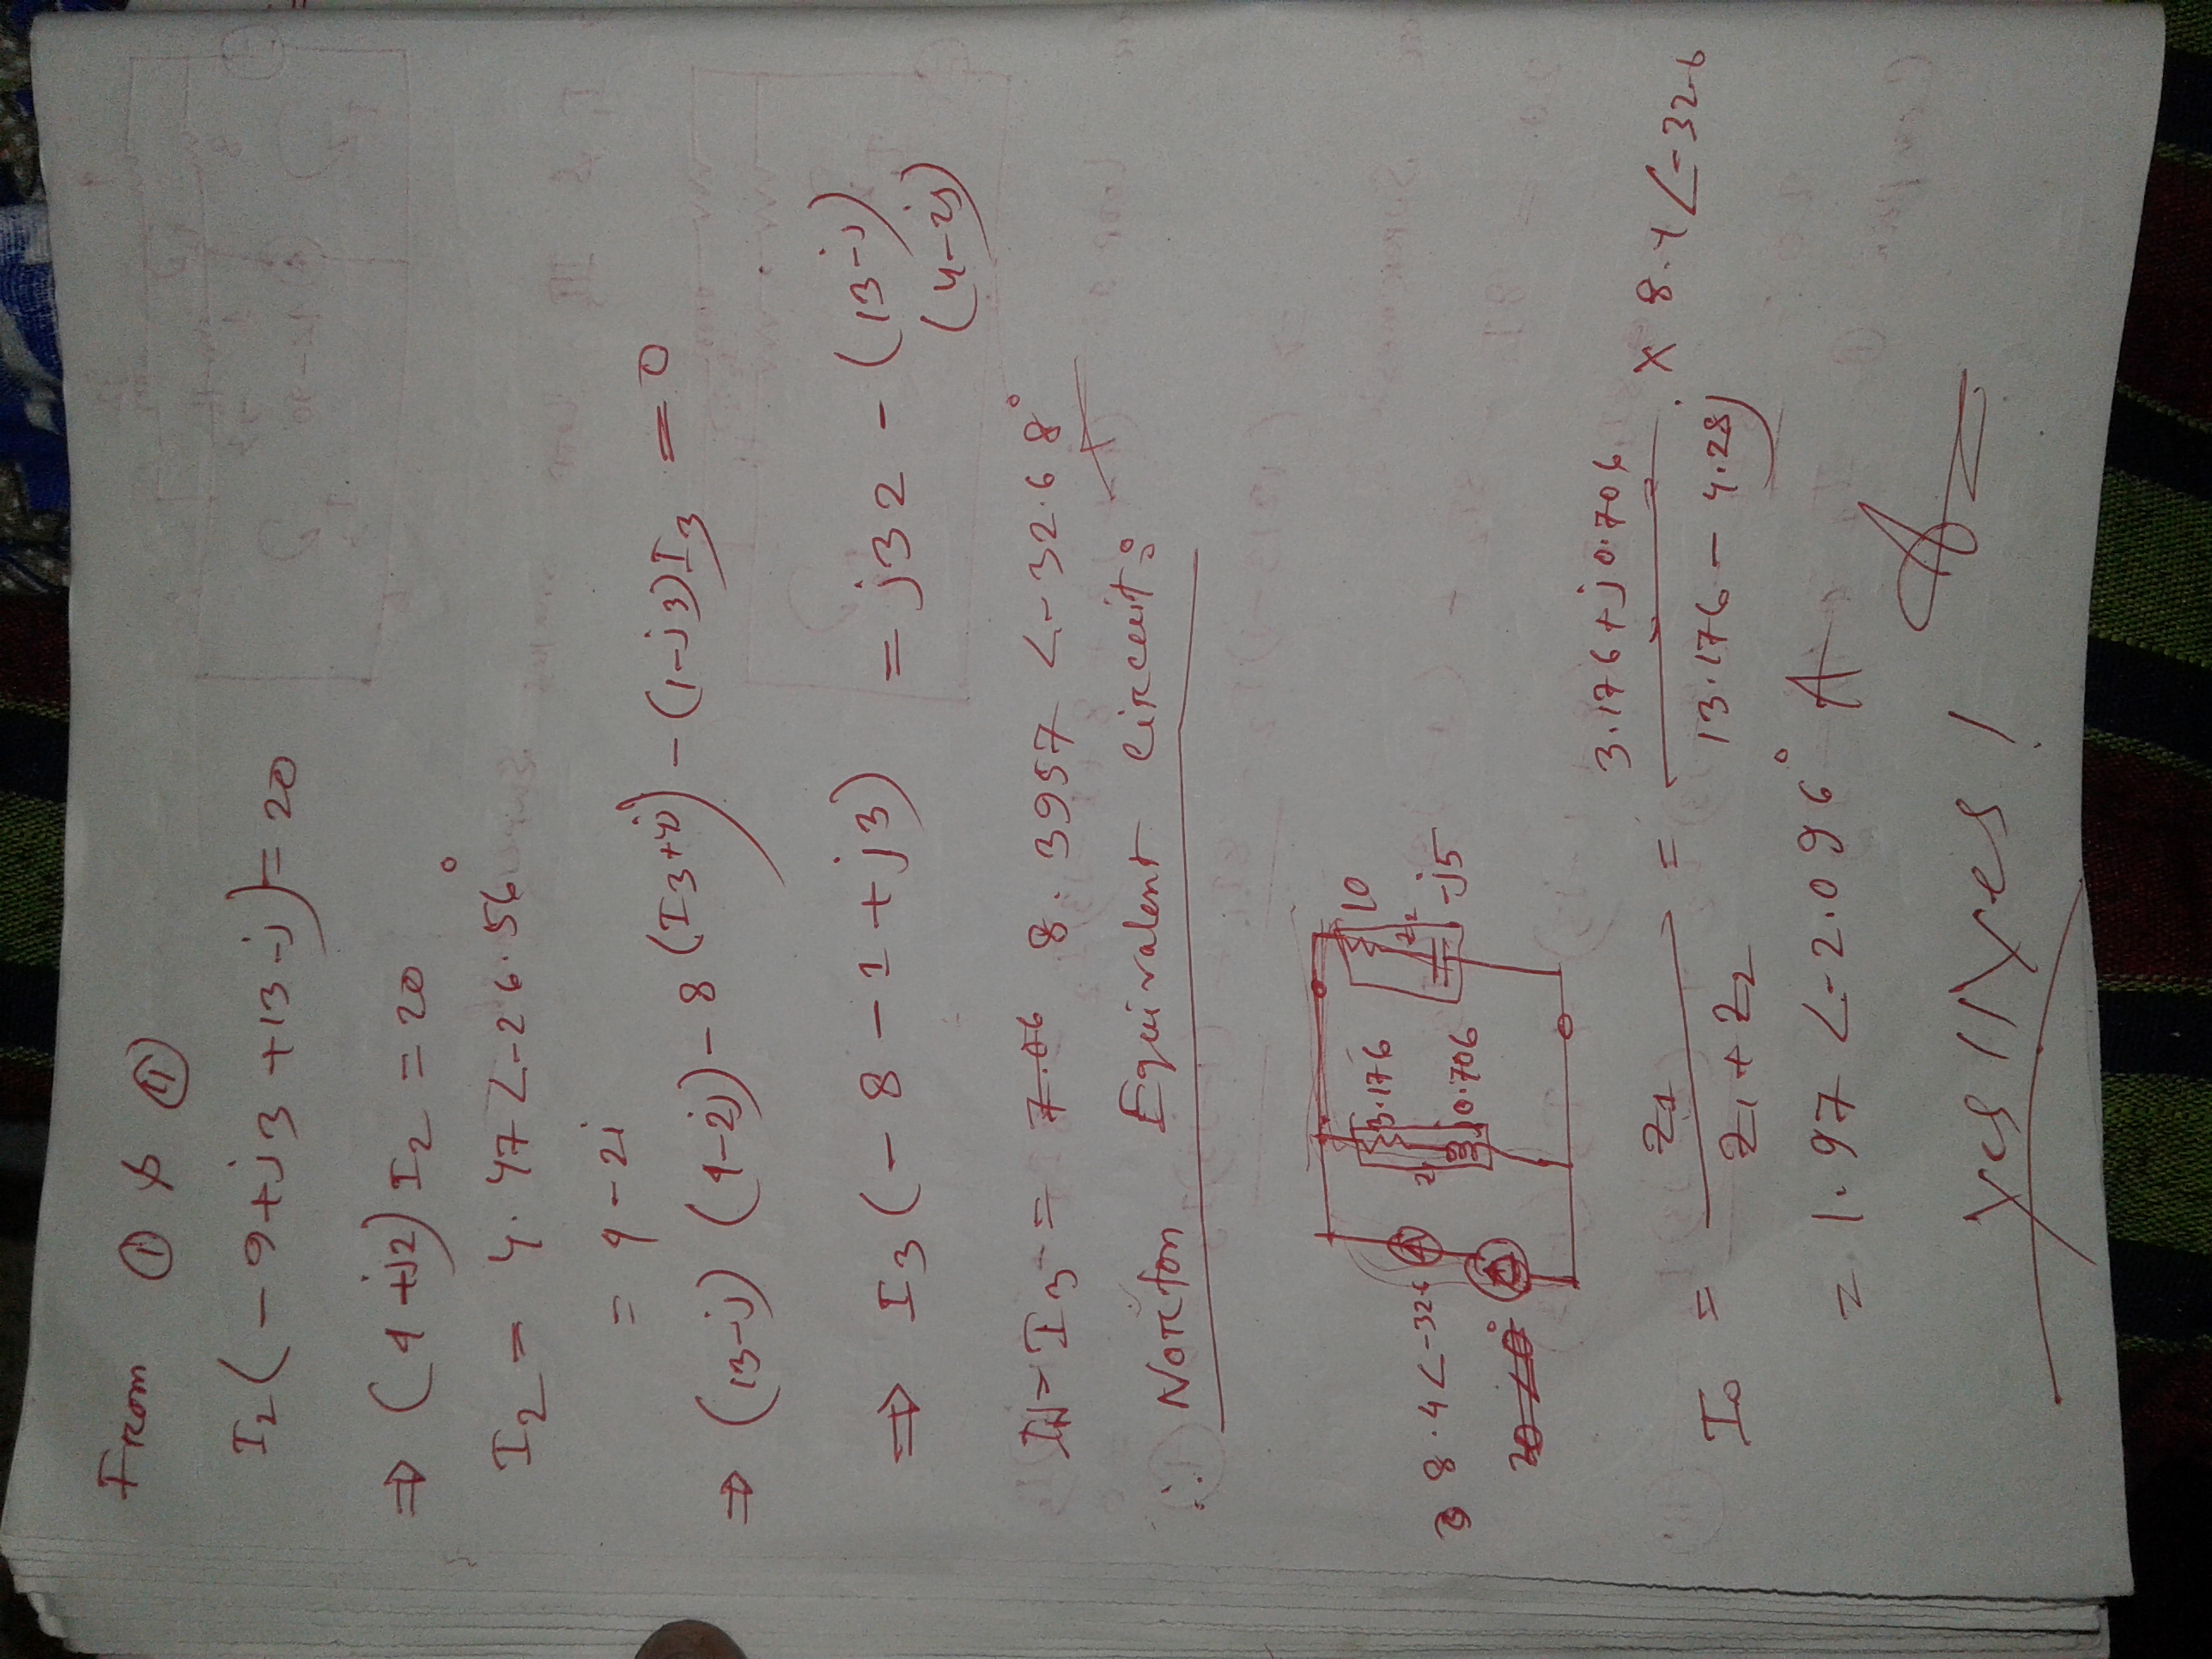 From ① & ⑪
I₂(-9+j3+13-j)=20
⇒ (4+j2)I₂=20
I₂ = 4.47∠-26.56°
= 4-2j
⇒ (13-j)(4-2j)-8(I₃+4j)-(1-j3)I₃ = 0
⇒ I₃(-8-1+j3) = j32-(13-j)(4-2j)
IN=I₃= 8.3957∠-32.68°
∴ Norton Equivalent circuit:
3.176
10
8.4∠-32.6
0.706
-j5
I₀ = Z₁/(Z₁+Z₂) = (3.176+j0.706)/(13.176-4.28j) × 8.4∠-32.6
= 1.97∠-2.096° A
yes!!yes!